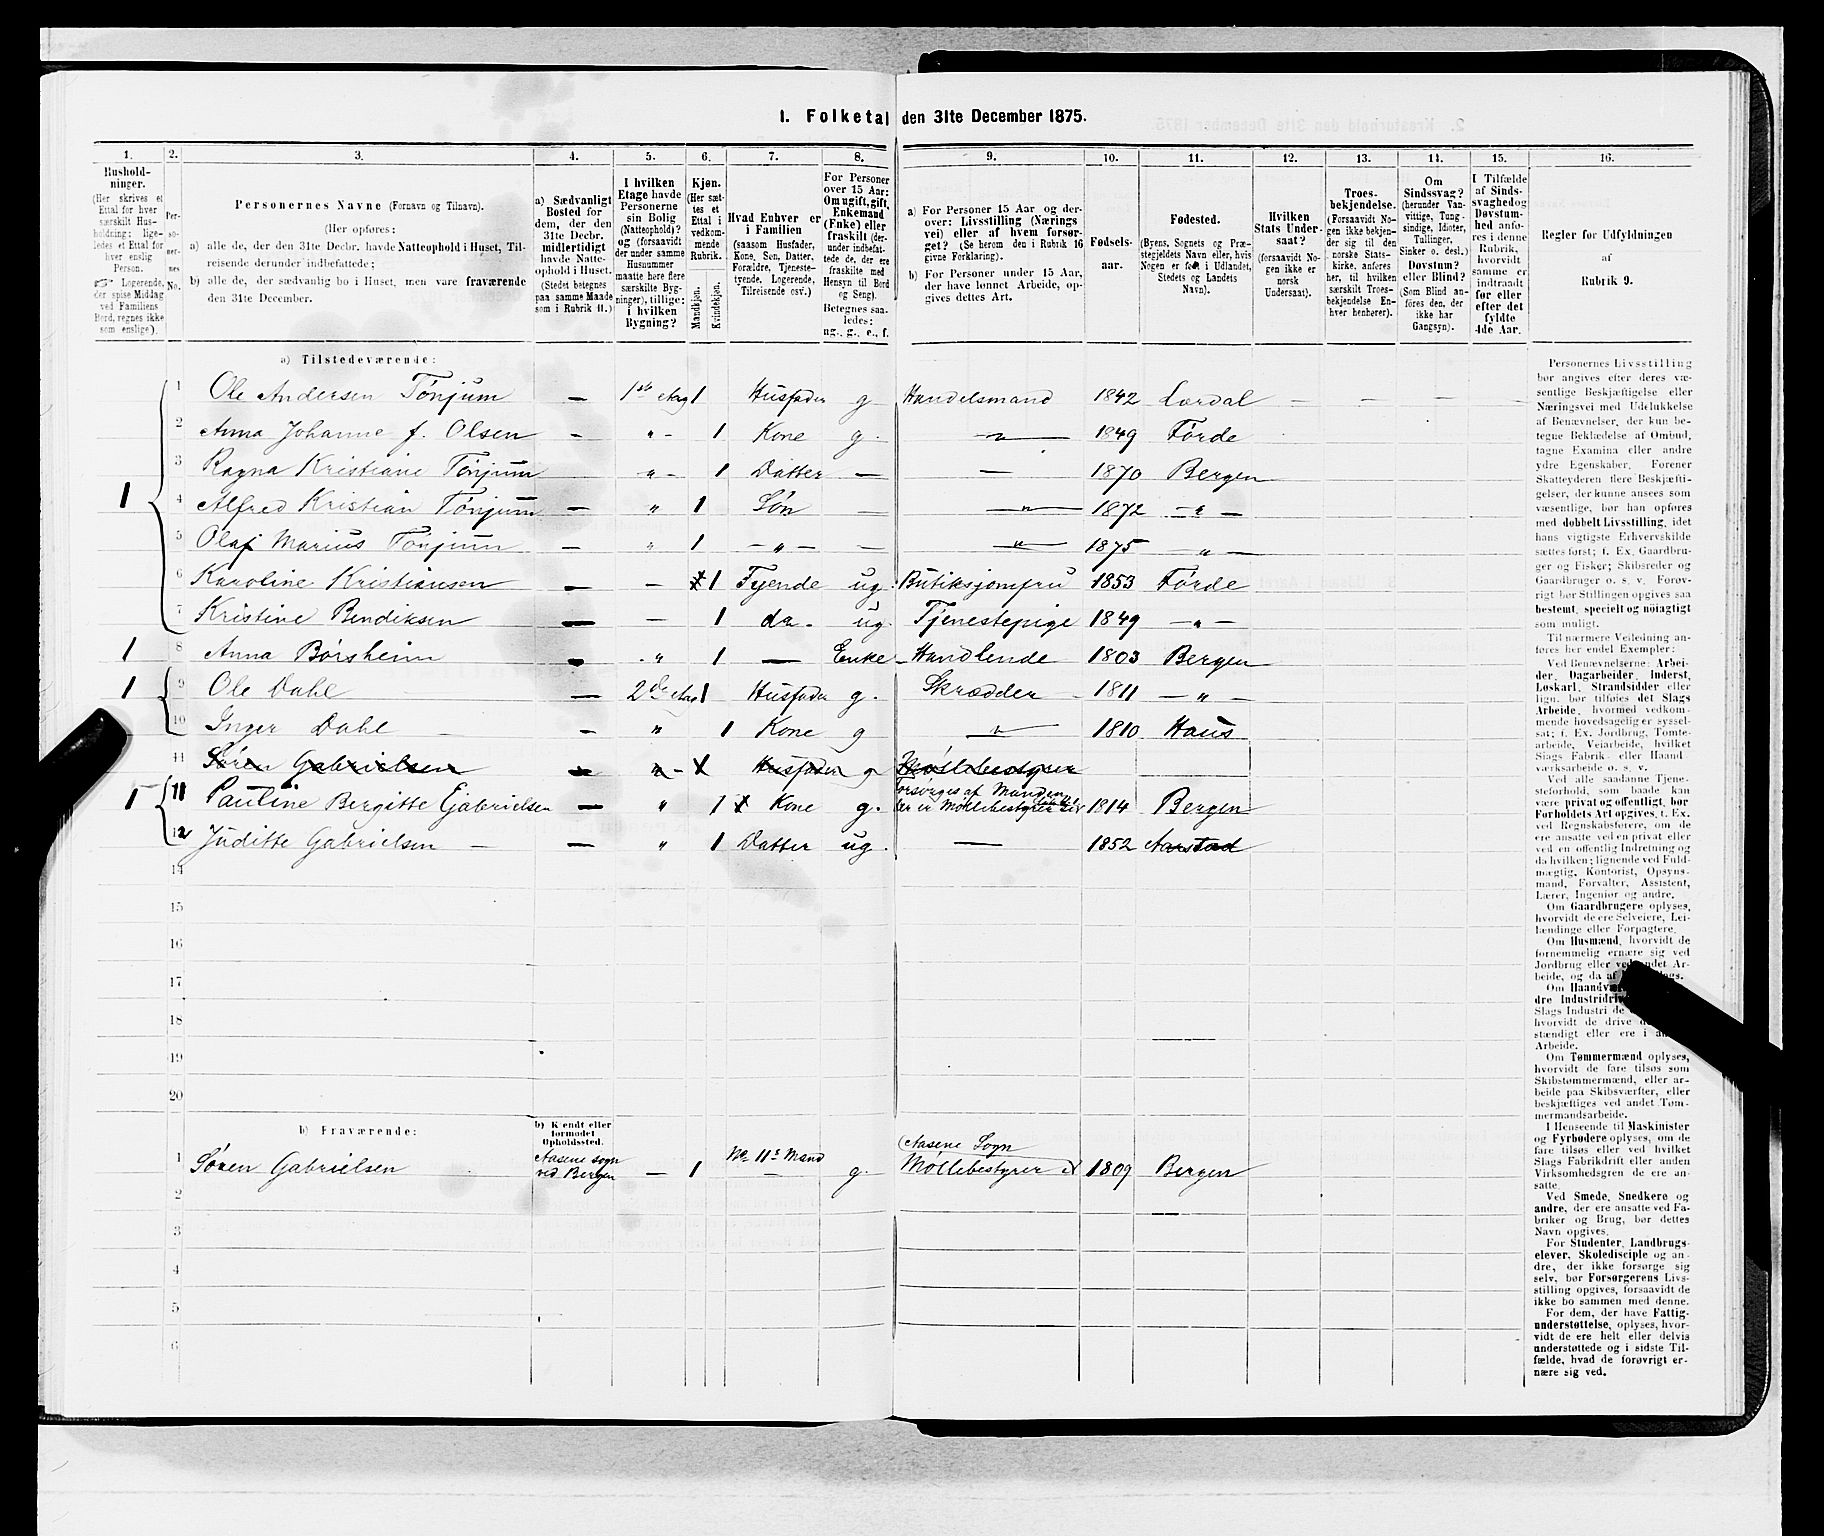 1. Folketal den 31te December 1875.
1. 2. 3. 4. 5. 6. 7. 8. 9. 10. 11. 12. 13. 14. 15. 16.
Hushold-
ninger.
(Her skrives et
Ettal for hver
særskilt Hus-
holdning; lige-
ledes et Ettal for
hver enslig
Person.
Logerende,
der spise Middag
ved Familiens
Bord, regnes ikke
som enslige).
Per-
so-
ner-
nes
No.
Personernes Navne (Fornavn og Tilnavn).
(Her opføres:
a) alle de, der den 31te Decbr. havde Natteophold i Huset, Til-
reisende derunder indbefattede;
b) alle de, der sædvanlig bo i Huset, men vare fraværende
den 31te December.
a) Sædvanligt
Bosted for
dem, der den
31te Decbr.
midlertidigt
havde Natte-
ophold i Huset.
(Stedet betegnes
paa samme Maade
som i Rubrik 11.)
I hvilken
Etage havde
Personerne
sin Bolig
(Natteophold)?
og (forsaavidt
der under samme
Husnummer
maatte høre flere
særskilte Byg-
ninger), tillige:
i hvilken
Bygning?
Kjøn.
(Her sæt-
tes et
Ettal i
vedkom-
mende
Rubrik.
Mandkjøn.
Kvindekjøn.
Hvad Enhver er
i Familien
(saasom Husfader,
Kone, Søn, Datter,
Forældre, Tjeneste-
tyende, Logerende,
Tilreisende osv.)
For Personer
over 15 Aar:
Om ugift, gift,
Enkemand
(Enke) eller
fraskilt (der-
under indbefat-
tede de, der ere
fraskilte med
Hensyn til Bord
og Seng).
Betegnes saa-
ledes:
ug., g., e., f.
a) For Personer 15 Aar og der-
over: Livsstilling (Nærings
vei) eller af hvem forsør-
get? (Se herom den i Rubrik 16
givne Forklaring).
b) For Personer under 15 Aar,
der have lønnet Arbeide, op-
gives dettes Art.
Fødsels-
aar.
Fødested.
(Byens, Sognets og Præ-
stegjeldets Navn eller, hvis
Nogen er født i Udlandet,
Stedets og Landets
Navn).
Hvilken
Stats Under-
saat?
(forsaavidt No-
gen ikke er
norsk
Undersaat).
Troes-
bekjendelse.
(Forsaavidt No-
gen ikke bekjen-
der sig til den
norske Stats-
kirke, anføres
her, til hvilken
særskilt Troes-
bekjendelse En-
hver henhører).
Om
Sindssvag?
(herunder Van-
vittige, Tung-
sindige, Idioter,
Tullinger,
Sinker o. desl.)
Døvstum?
eller Blind?
(Som Blind an-
føres den, der
ikke har
Gangsyn).
I Tilfælde
af Sinds-
svaghed og
Døvstum-
hed anfø-
res i denne
Rubrik,
hvorvidt
samme er
indtraadt
før eller
efter det
fyldte
4de Aar.
Regler for Udfyldningen
af
Rubrik 9.
a) Tilstedeværende:
1 Ole Andersen Tønjum — 1ste Etag 1 Husfader g Handelsmand 1842 Lærdal — — — —
2 Anna Johanne f. Olsen — " — 1 Kone g. — " — 1849 Førde
3 Ragna Kristiane Tønjum — " — 1 Datter — — 1870 Bergen
1 4 Alfred Kristian Tønjum — " 1 Søn — — " — 1872 — " —
5 Olaf Marius Tønjum — " 1 — " — — — " — 1875 — " —
6 Karoline Kristiansen — — 1 Tyende ug. Butiksjomfru 1853 Førde
7 Kristine Bendiksen — — 1 do. ug. Tjenestepige 1849 — " —
1 8 Anna Børsheim — " 1 — Enke Handlende 1803 Bergen
1 9 Ole Dahl — 2den Etag 1 Husfader g. Skrædder 1811 — " —
10 Inger Dahl — " 1 Kone g — " — 1810 Haus
11 Søren Gabrielsen — " — 1 Husfader g Møllebestyrer
1 11 Pauline Bergitte Gabrielsen — " 1 Kone g. forsørges af Manden der er Møllebestyrer 1814 Bergen
12 Juditte Gabrielsen — — " 1 Datter ug. — 1852 Aarstad
14
15
16
17
18
19
20
b) Fraværende:
b) Kjendt eller
formodet
Opholdssted.
1 Søren Gabrielsen Aasene sogn ved Bergen — 1 No 11s Mand g. Aasene Sogn Møllebestyrer i 1809 Bergen
2
3
4
5
6
Personernes Livsstilling
bør angives efter deres væ-
sentlige Beskjæftigelse eller
Næringsvei med Udelukkelse
af Benævnelser, der kun be-
tegne Beklædelse af Ombud,
tagne Examina eller andre
ydre Egenskaber. Forener
Skatteyderen flere Beskjæfti-
gelser, der kunne ansees som
væsentlige, bør han opføres
med dobbelt Livsstilling, idet
hans vigtigste Erhvervskilde
sættes først; f. Ex. Gaardbru-
ger og Fisker; Skibsreder og
Gaardbruger o. s. v. Forøv-
rigt bør Stillingen opgives saa
bestemt, specielt og nøiagtigt
som muligt.
Til nærmere Veiledning an-
føres her endel Exempler:
Ved Benævnelserne: Arbei-
der, Dagarbeider, Inderst,
Løskarl, Strandsidder eller
lign. bør tilføies det Slags
Arbeide, hvormed vedkom-
mende hovedsagelig er syssel-
sat; f. Ex. Jordbrug, Tomte-
arbeide, Veiarbeide, hvilket
Slags Fabrik- eller Haand
værksarbeide o. s. v.
Ved alle saadanne Tjene-
steforhold, som baade kan
være privat og offentlig, bør
Forholdets Art opgives, t. Ex.
ved Regnskabsførere, om de
ere ansatte ved en privat eller
ved en offentlig Indretning og
da hvilken; lignende ved Fuld-
mægtig, Kontorist, Opsyns-
mand, Forvalter, Assistent,
Lærer, Ingeniør og andre.
Om Gaardbrugere oplyses,
hvorvidt de ere Selveiere, Lei-
lændinge eller Forpagtere.
Om Husmænd, hvorvidt de
fornemmelig ernære sig ved
Jordbrug eller ved andet Ar-
beide, og da af
Om Haandvær
dre Industridri
Slags Industri de
hvorvidt de drive
stændigt eller ere i
Arbeide.
Om Tømmermænd oplyses,
hvorvidt de fare tilsøs som
Skibstømmermænd, eller ar-
beide paa Skibsværfter, eller
beskjæftiges ved andet Tøm-
mermandsarbeide.
I Henseende til Maskinister
og Fyrbødere oplyses, om de
fare tilsøs eller ved hvilket
Slags Fabrikdrift eller anden
Virksomhedsgren de ere an-
satte.
Ved Smede, Snedkere og
andre, der ere ansatte ved Fa-
briker og Brug, bør dettes
Navn opgives.
For Studenter, Landbrugs-
elever, Skoledisciple og an-
dre, der ikke forsørge sig
selv, bør Forsørgerens Livs-
stilling opgives, forsaavidt de
ikke bo sammen med denne.
For dem, der have Fattig-
understøttelse, oplyses, hvor-
vidt de ere helt eller delvis
understøttede og i sidste Til-
fælde, hvad de forøvrigt er-
nære sig ved.